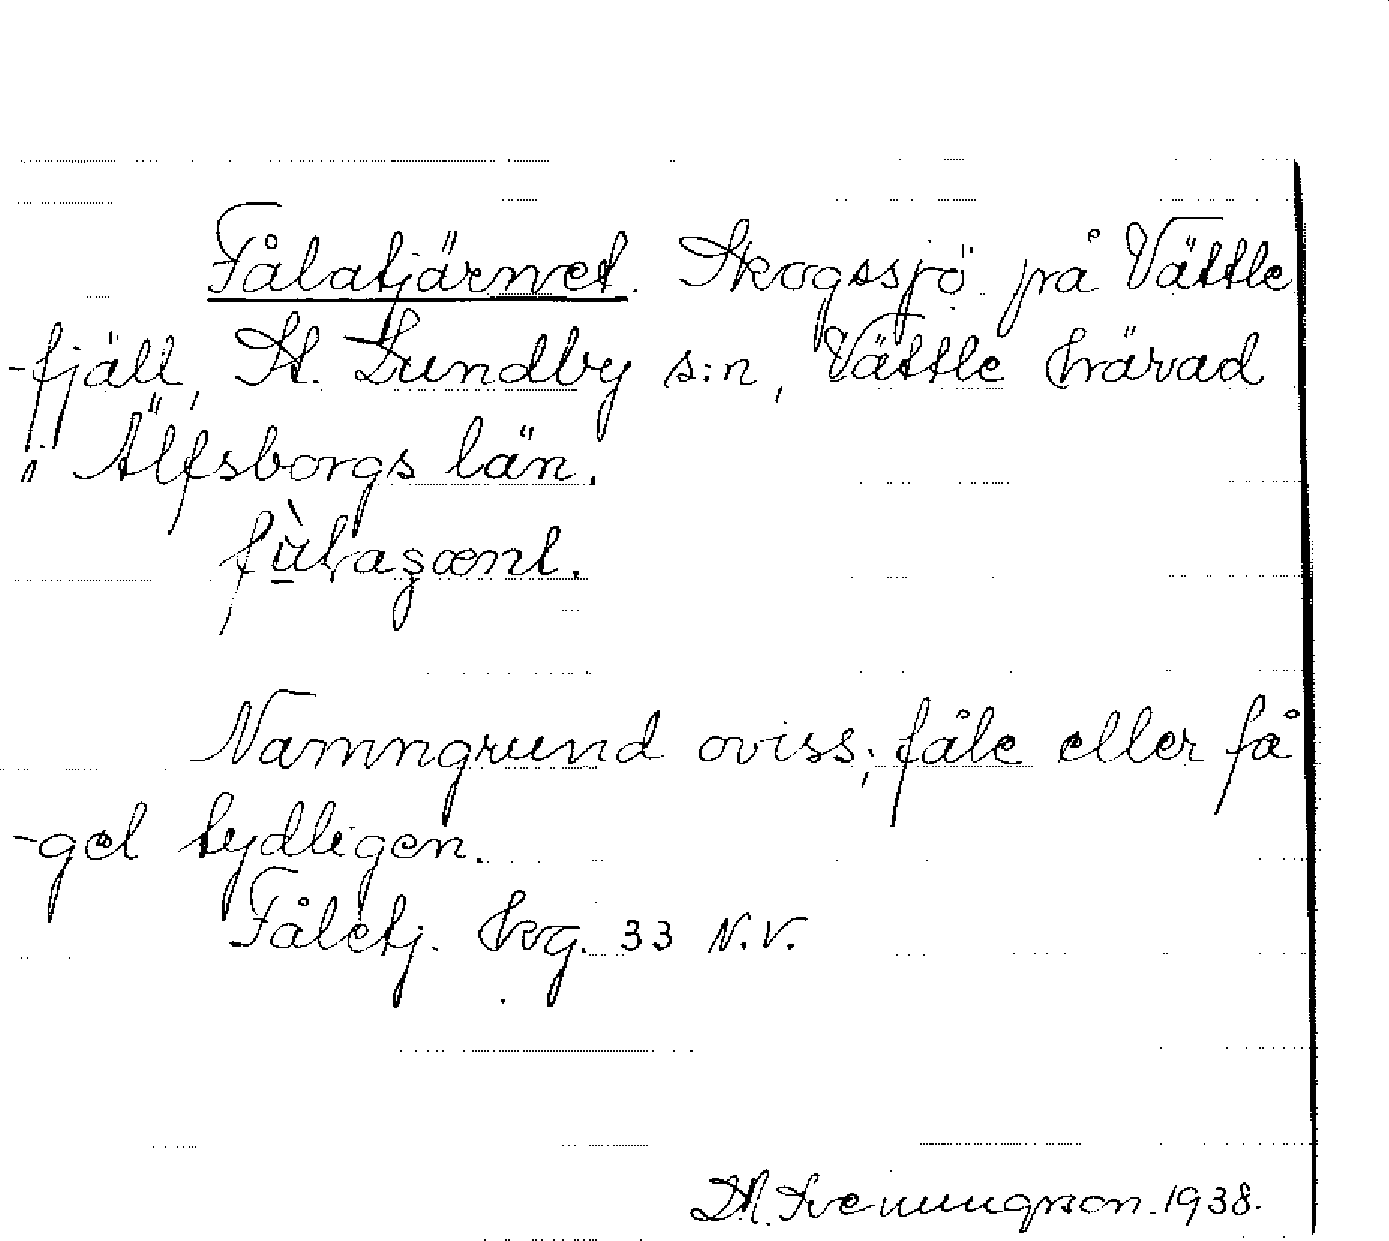 Fålatjärnet. Skogssjö på Vättle
-fjäll, St. Lundby s:n, Vättle härad
i Älfsborgs län.
Namngrund oviss; fåle eller få
-gel tydligen.
Fåletj. kg. 33 N.V.
Svenungsson. 1938.